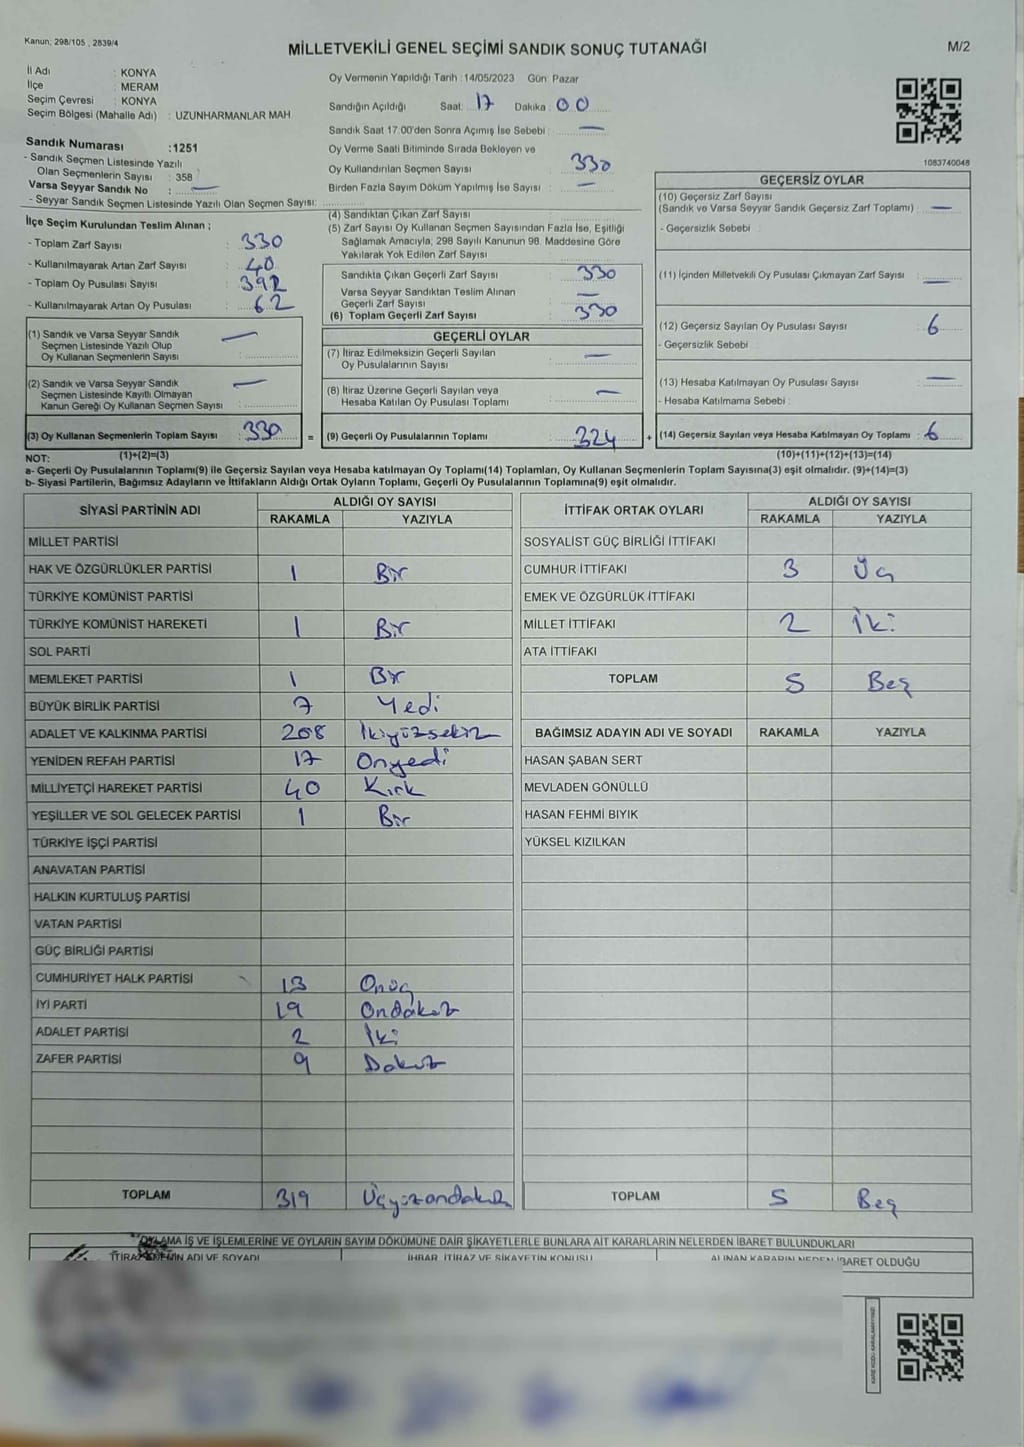 Kanun; 298/105 , 2839/4
MİLLETVEKİLİ GENEL SEÇİMİ SANDIK SONUÇ TUTANAĞI
M/2
İl Adı : KONYA
İlçe : MERAM
Seçim Çevresi : KONYA
Seçim Bölgesi (Mahalle Adı) : UZUNHARMANLAR MAH
Sandık Numarası :1251
- Sandık Seçmen Listesinde Yazılı
Olan Seçmenlerin Sayısı : 358
Varsa Seyyar Sandık No : —
- Seyyar Sandık Seçmen Listesinde Yazılı Olan Seçmen Sayısı:
Oy Vermenin Yapıldığı Tarih :14/05/2023 Gün: Pazar
Sandığın Açıldığı Saat: 17 Dakika : 00
Sandık Saat 17.00'den Sonra Açımış İse Sebebi : —
Oy Verme Saati Bitiminde Sırada Bekleyen ve
Oy Kullandırılan Seçmen Sayısı : 330
Birden Fazla Sayım Döküm Yapılmış İse Sayısı : —
1083740048
İlçe Seçim Kurulundan Teslim Alınan ;
- Toplam Zarf Sayısı : 330
- Kullanılmayarak Artan Zarf Sayısı : 40
- Toplam Oy Pusulası Sayısı : 392
- Kullanılmayarak Artan Oy Pusulası : 62
(1) Sandık ve Varsa Seyyar Sandık
Seçmen Listesinde Yazılı Olup
Oy Kullanan Seçmenlerin Sayısı : —
(2) Sandık ve Varsa Seyyar Sandık
Seçmen Listesinde Kayıtlı Olmayan
Kanun Gereği Oy Kullanan Seçmen Sayısı : —
(3) Oy Kullanan Seçmenlerin Toplam Sayısı : 330
(1)+(2)=(3)
(4) Sandıktan Çıkan Zarf Sayısı
(5) Zarf Sayısı Oy Kullanan Seçmen Sayısından Fazla İse, Eşitliği
Sağlamak Amacıyla; 298 Sayılı Kanunun 98. Maddesine Göre
Yakılarak Yok Edilen Zarf Sayısı
Sandıkta Çıkan Geçerli Zarf Sayısı : 330
Varsa Seyyar Sandıktan Teslim Alınan
Geçerli Zarf Sayısı : —
(6) Toplam Geçerli Zarf Sayısı : 330
GEÇERLİ OYLAR
(7) İtiraz Edilmeksizin Geçerli Sayılan
Oy Pusulalarının Sayısı : —
(8) İtiraz Üzerine Geçerli Sayılan veya
Hesaba Katılan Oy Pusulası Toplamı : —
= (9) Geçerli Oy Pusulalarının Toplamı : 324
GEÇERSİZ OYLAR
(10) Geçersiz Zarf Sayısı
(Sandık ve Varsa Seyyar Sandık Geçersiz Zarf Toplamı) : —
- Geçersizlik Sebebi :
(11) İçinden Milletvekili Oy Pusulası Çıkmayan Zarf Sayısı : —
(12) Geçersiz Sayılan Oy Pusulası Sayısı : 6
- Geçersizlik Sebebi :
(13) Hesaba Katılmayan Oy Pusulası Sayısı : —
- Hesaba Katılmama Sebebi :
+ (14) Geçersiz Sayılan veya Hesaba Katılmayan Oy Toplamı : 6
(10)+(11)+(12)+(13)=(14)
NOT:
a- Geçerli Oy Pusulalarının Toplamı(9) ile Geçersiz Sayılan veya Hesaba katılmayan Oy Toplamı(14) Toplamları, Oy Kullanan Seçmenlerin Toplam Sayısına(3) eşit olmalıdır. (9)+(14)=(3)
b- Siyasi Partilerin, Bağımsız Adayların ve İttifakların Aldığı Ortak Oyların Toplamı, Geçerli Oy Pusulalarının Toplamına(9) eşit olmalıdır.
SİYASİ PARTİNİN ADI ALDIĞI OY SAYISI
RAKAMLA YAZIYLA
MİLLET PARTİSİ
HAK VE ÖZGÜRLÜKLER PARTİSİ 1 Bir
TÜRKİYE KOMÜNİST PARTİSİ
TÜRKİYE KOMÜNİST HAREKETİ 1 Bir
SOL PARTİ
MEMLEKET PARTİSİ 1 Bir
BÜYÜK BİRLİK PARTİSİ 7 Yedi
ADALET VE KALKINMA PARTİSİ 208 İkiyüzsekiz
YENİDEN REFAH PARTİSİ 17 Onyedi
MİLLİYETÇİ HAREKET PARTİSİ 40 Kırk
YEŞİLLER VE SOL GELECEK PARTİSİ 1 Bir
TÜRKİYE İŞÇİ PARTİSİ
ANAVATAN PARTİSİ
HALKIN KURTULUŞ PARTİSİ
VATAN PARTİSİ
GÜÇ BİRLİĞİ PARTİSİ
CUMHURİYET HALK PARTİSİ 13 Onüç
İYİ PARTİ 19 Ondokuz
ADALET PARTİSİ 2 İki
ZAFER PARTİSİ 9 Dokuz
TOPLAM 319 Üçyüzondokuz
İTTİFAK ORTAK OYLARI ALDIĞI OY SAYISI
RAKAMLA YAZIYLA
SOSYALİST GÜÇ BİRLİĞİ İTTİFAKI
CUMHUR İTTİFAKI 3 Üç
EMEK VE ÖZGÜRLÜK İTTİFAKI
MİLLET İTTİFAKI 2 İki
ATA İTTİFAKI
TOPLAM 5 Beş
BAĞIMSIZ ADAYIN ADI VE SOYADI RAKAMLA YAZIYLA
HASAN ŞABAN SERT
MEVLADEN GÖNÜLLÜ
HASAN FEHMİ BIYIK
YÜKSEL KIZILKAN
TOPLAM 5 Beş
OYLAMA İŞ VE İŞLEMLERİNE VE OYLARIN SAYIM DÖKÜMÜNE DAİR ŞİKAYETLERLE BUNLARA AİT KARARLARIN NELERDEN İBARET BULUNDUKLARI
İTİRAZ EDENİN ADI VE SOYADI İHBAR, İTİRAZ VE ŞİKAYETİN KONUSU ALINAN KARARIN NEDEN İBARET OLDUĞU